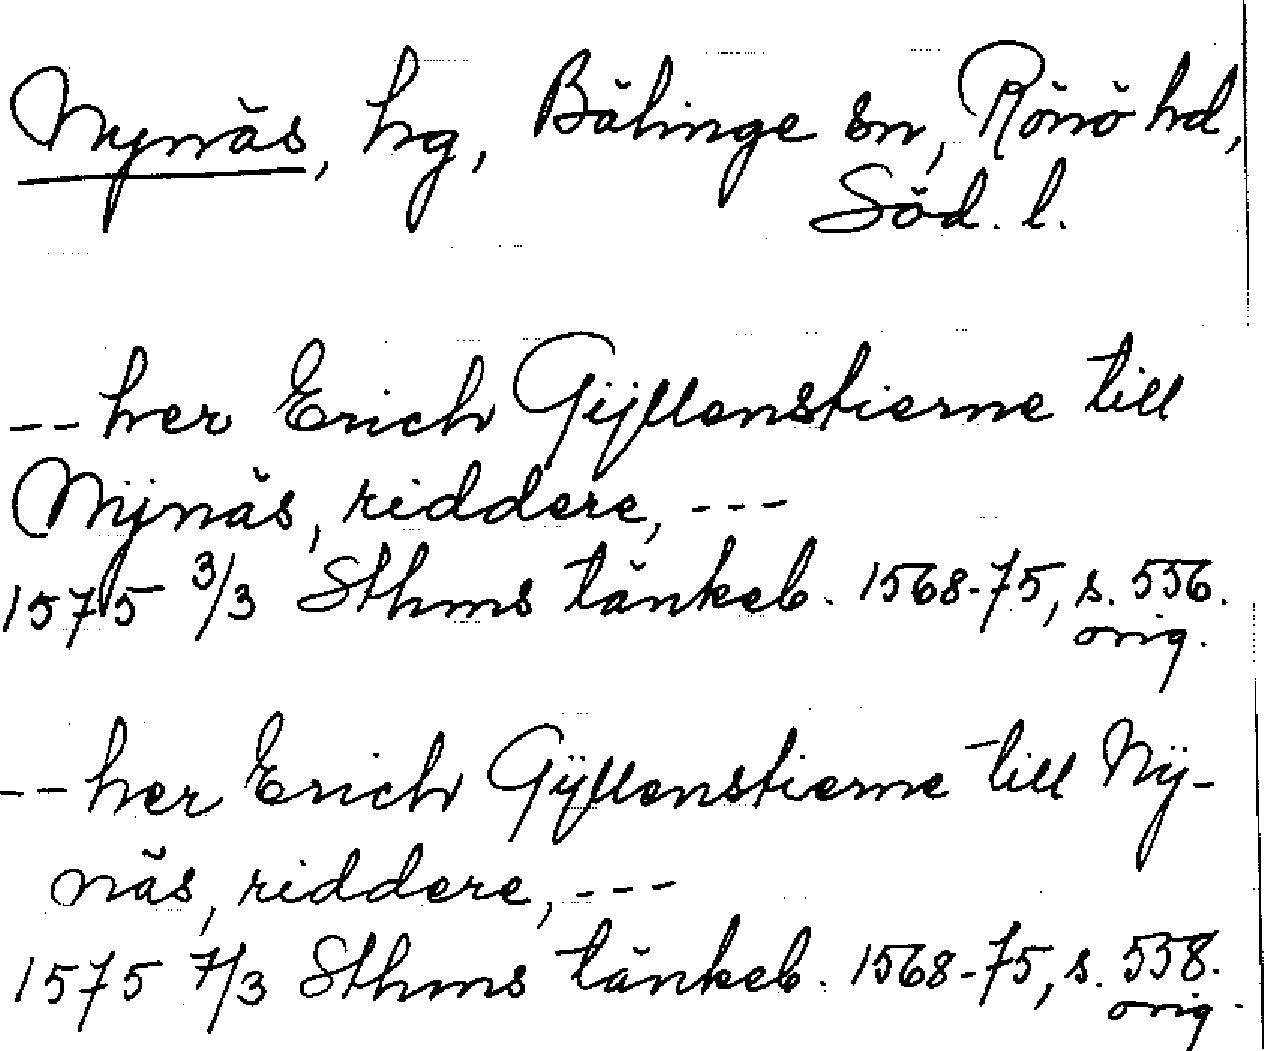 Nynäs, hg, Bälinge sn, Rönö hd,
Söd. l.
-- her Erich Gÿllenstierne till
Nÿnäs, riddere, ---
1575 3/3 Sthms tänkeb. 1568-75, s. 556.
orig.
-- her Erich Gÿllenstierne till Nÿ-
näs, riddere, ---
1575 7/3 Sthms tänkeb. 1568-75, s. 558.
orig.